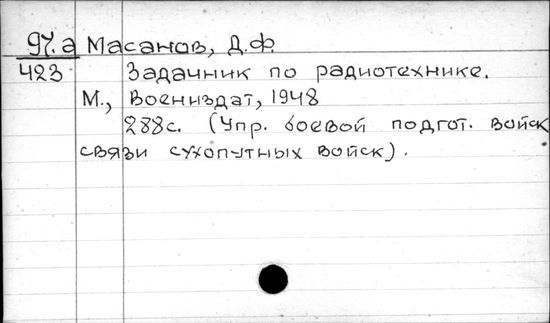 97.а Масанов, Д.Ф.
423 Задачник по радиотехнике.
М., Воениздат, 1948
288с. (Упр. боевой подгот. войск
связи сухопутных войск).